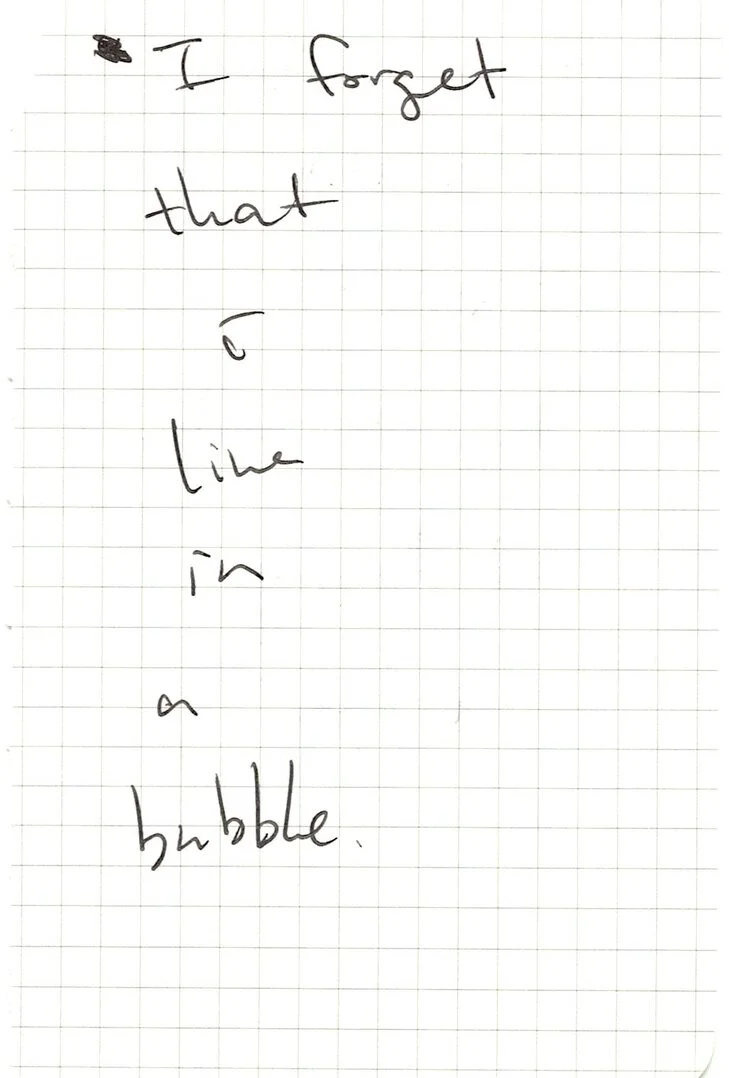 I forget
that
i
live
in
a
bubble.